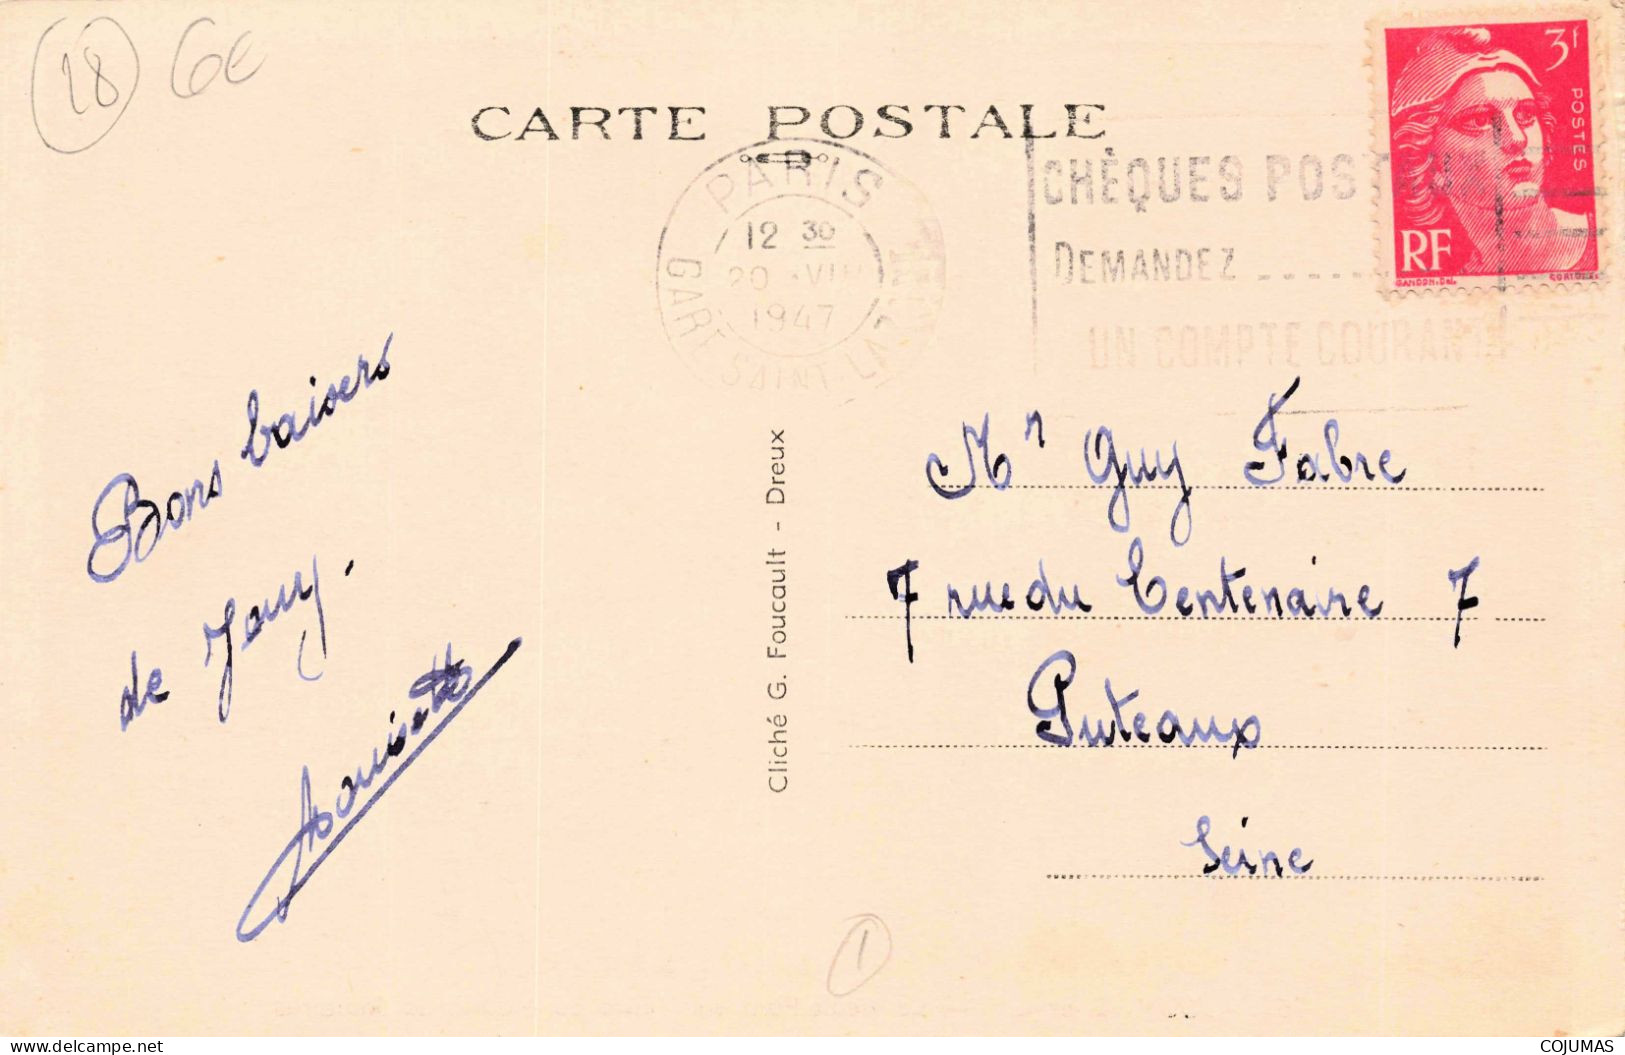 28 6€
CARTE POSTALE
PARIS
GARE SAINT-LAZARE
12 30
20 -VIII
1947
CHÈQUES POSTAUX
DEMANDEZ
UN COMPTE COURANT
3F
POSTES
RF
GANDON.Del.
CORTOT.SC
Bons baisers
de Jouy.
Louisette
Cliché G. Foucault - Dreux
Mr Guy Fabre
7 rue du Centenaire 7
Puteaux
Seine
1
COJUMAS